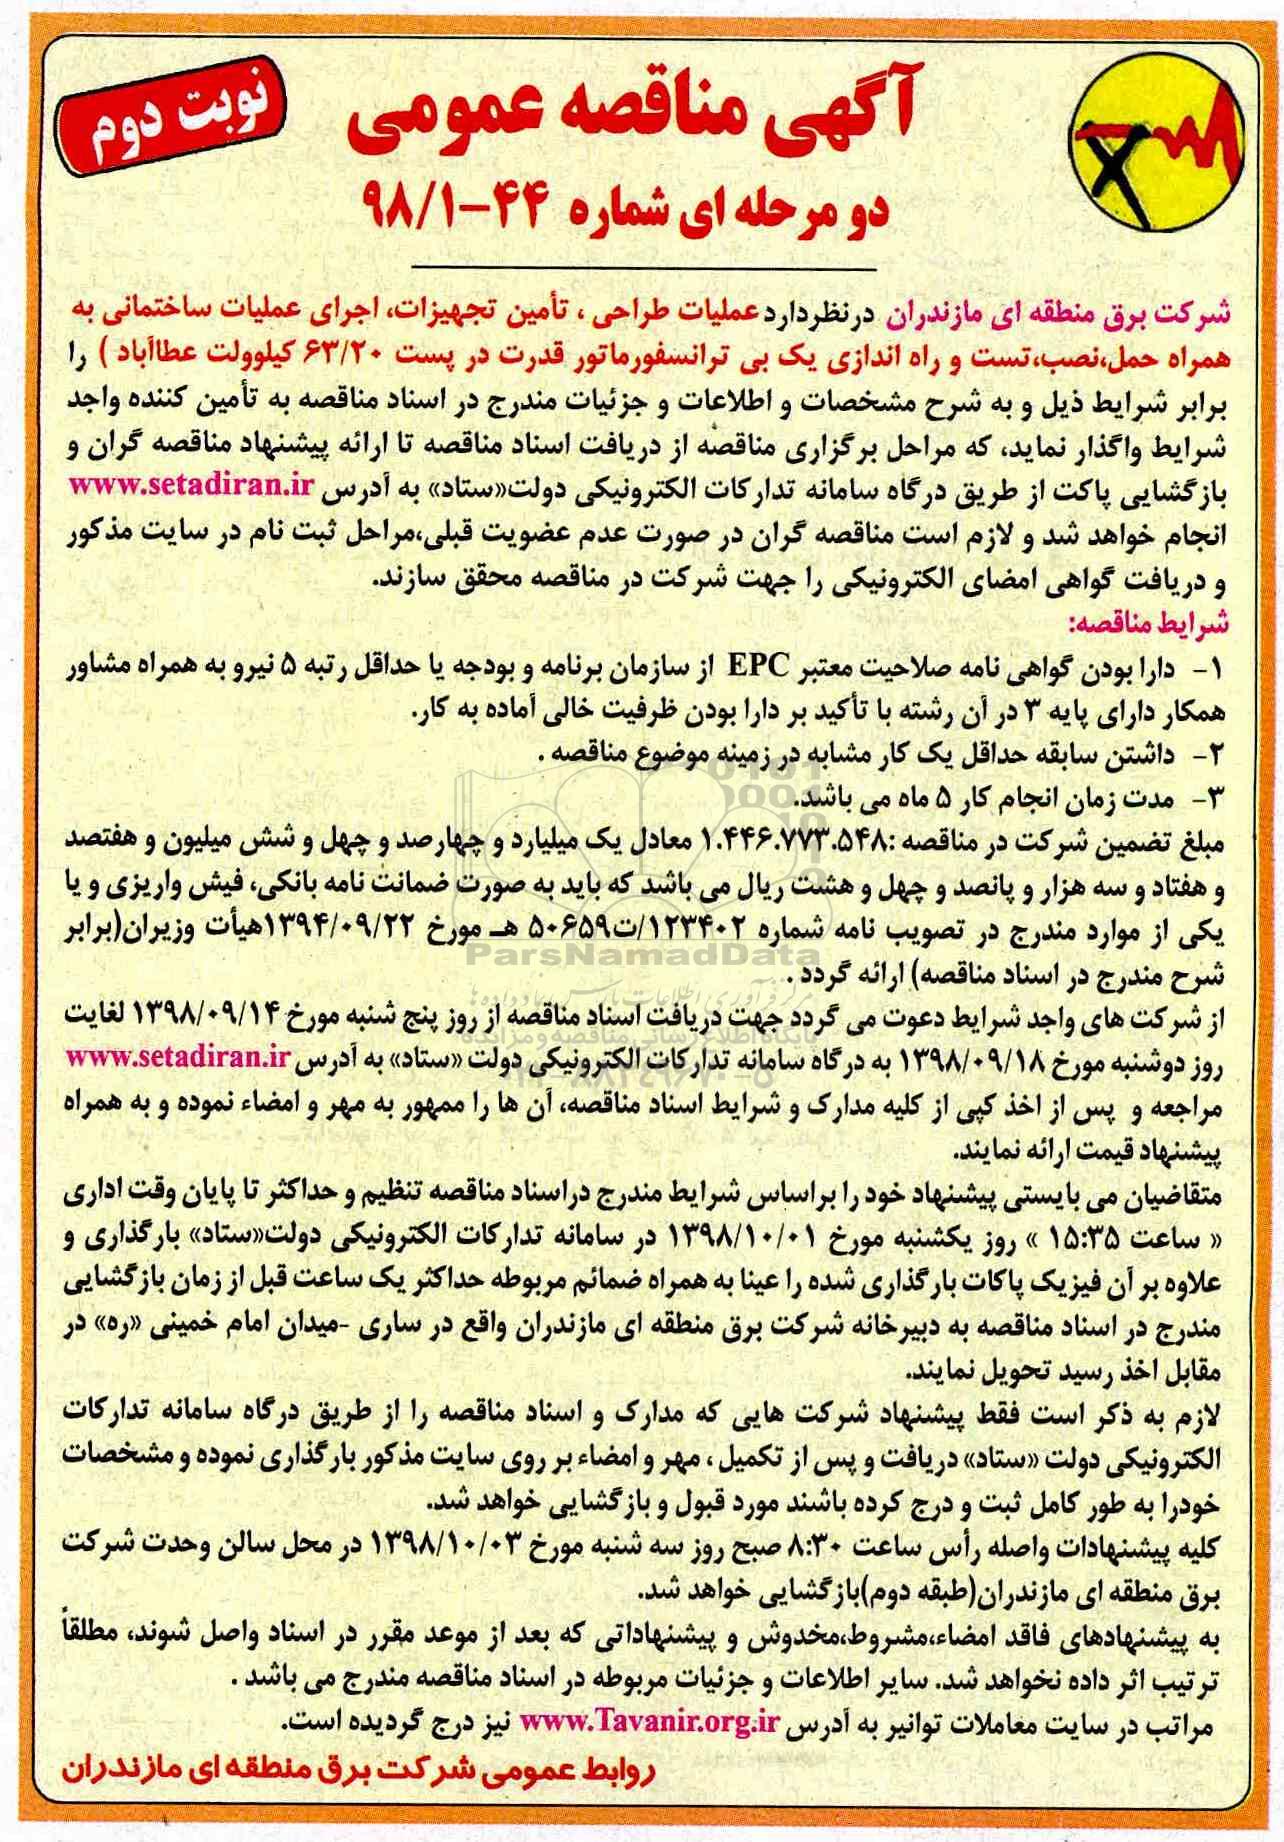 نوبت دوم
آگهی مناقصه عمومی
دو مرحله ای شماره ۴۴-۹۸/۱
شرکت برق منطقه ای مازندران درنظردارد عملیات طراحی ، تأمین تجهیزات، اجرای عملیات ساختمانی به
همراه حمل،نصب،تست و راه اندازی یک بی ترانسفورماتور قدرت در پست ۶۳/۲۰ کیلوولت عطاآباد ) را
برابر شرایط ذیل و به شرح مشخصات و اطلاعات و جزئیات مندرج در اسناد مناقصه به تأمین کننده واجد
شرایط واگذار نماید، که مراحل برگزاری مناقصه از دریافت اسناد مناقصه تا ارائه پیشنهاد مناقصه گران و
بازگشایی پاکت از طریق درگاه سامانه تدارکات الکترونیکی دولت«ستاد» به آدرس www.setadiran.ir
انجام خواهد شد و لازم است مناقصه گران در صورت عدم عضویت قبلی،مراحل ثبت نام در سایت مذکور
و دریافت گواهی امضای الکترونیکی را جهت شرکت در مناقصه محقق سازند.
شرایط مناقصه:
۱- دارا بودن گواهی نامه صلاحیت معتبر EPC از سازمان برنامه و بودجه یا حداقل رتبه ۵ نیرو به همراه مشاور
همکار دارای پایه ۳ در آن رشته با تأکید بر دارا بودن ظرفیت خالی آماده به کار.
۲- داشتن سابقه حداقل یک کار مشابه در زمینه موضوع مناقصه .
۳- مدت زمان انجام کار ۵ ماه می باشد.
مبلغ تضمین شرکت در مناقصه :۱.۴۴۶.۷۷۳.۵۴۸ معادل یک میلیارد و چهارصد و چهل و شش میلیون و هفتصد
و هفتاد و سه هزار و پانصد و چهل و هشت ریال می باشد که باید به صورت ضمانت نامه بانکی، فیش واریزی و یا
یکی از موارد مندرج در تصویب نامه شماره ۱۲۳۴۰۲/ت۵۰۶۵۹ هـ مورخ ۱۳۹۴/۰۹/۲۲هیأت وزیران(برابر
شرح مندرج در اسناد مناقصه) ارائه گردد .
ParsNamadData
از شرکت های واجد شرایط دعوت می گردد جهت دریافت اسناد مناقصه از روز پنج شنبه مورخ ۱۳۹۸/۰۹/۱۴ لغایت
روز دوشنبه مورخ ۱۳۹۸/۰۹/۱۸ به درگاه سامانه تدارکات الکترونیکی دولت «ستاد» به آدرس www.setadiran.ir
مراجعه و پس از اخذ کپی از کلیه مدارک و شرایط اسناد مناقصه، آن ها را ممهور به مهر و امضاء نموده و به همراه
پیشنهاد قیمت ارائه نمایند.
متقاضیان می بایستی پیشنهاد خود را براساس شرایط مندرج دراسناد مناقصه تنظیم و حداکثر تا پایان وقت اداری
« ساعت ۱۵:۳۵ » روز یکشنبه مورخ ۱۳۹۸/۱۰/۰۱ در سامانه تدارکات الکترونیکی دولت«ستاد» بارگذاری و
علاوه بر آن فیزیک پاکات بارگذاری شده را عینا به همراه ضمائم مربوطه حداکثر یک ساعت قبل از زمان بازگشایی
مندرج در اسناد مناقصه به دبیرخانه شرکت برق منطقه ای مازندران واقع در ساری -میدان امام خمینی «ره» در
مقابل اخذ رسید تحویل نمایند.
لازم به ذکر است فقط پیشنهاد شرکت هایی که مدارک و اسناد مناقصه را از طریق درگاه سامانه تدارکات
الکترونیکی دولت «ستاد» دریافت و پس از تکمیل ، مهر و امضاء بر روی سایت مذکور بارگذاری نموده و مشخصات
خودرا به طور کامل ثبت و درج کرده باشند مورد قبول و بازگشایی خواهد شد.
کلیه پیشنهادات واصله رأس ساعت ۸:۳۰ صبح روز سه شنبه مورخ ۱۳۹۸/۱۰/۰۳ در محل سالن وحدت شرکت
برق منطقه ای مازندران(طبقه دوم)بازگشایی خواهد شد.
به پیشنهادهای فاقد امضاء،مشروط،مخدوش و پیشنهاداتی که بعد از موعد مقرر در اسناد واصل شوند، مطلقاً
ترتیب اثر داده نخواهد شد. سایر اطلاعات و جزئیات مربوطه در اسناد مناقصه مندرج می باشد .
مراتب در سایت معاملات توانیر به آدرس www.Tavanir.org.ir نیز درج گردیده است.
روابط عمومی شرکت برق منطقه ای مازندران